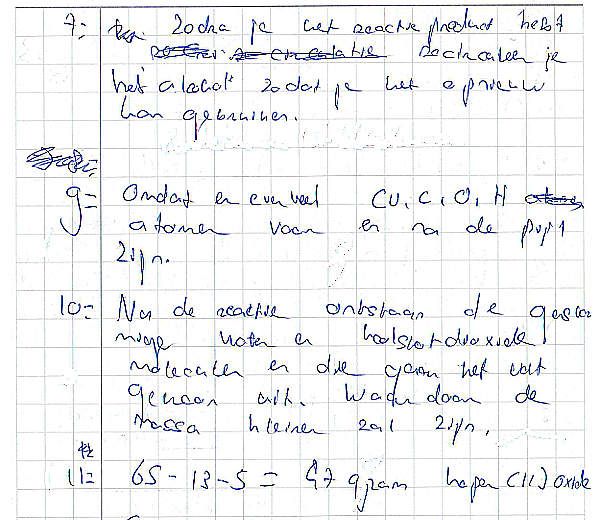 7= Zodra je het reactie product hebt
recirculeer je
het alcohol zodat je het opnieuw
kan gebruiken.
9= Omdat er evenveel Cu, C, O, H
atomen voor en na de pijl
zijn.
10= Na de reactie ontstaan de gasvor
mige water en koolstofdioxide
moleculen en die gaan het vat
gewoon uit. Waardoor de
massa kleiner zal zijn.
11= 65 - 13 - 5 = 47 gram koper (II) oxide